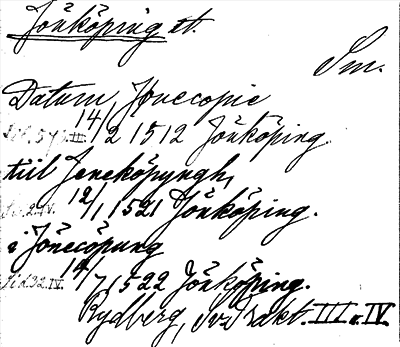 Jönköping st.
Sm.
Datum Jönecopie
14/2 1512 Jönköping
till Jeneköpyngh,
12/1 1521 Jönköping.
i Jönecöpung
14/7 1522 Jönköping.
Rydberg, Sv. Trakt. III o. IV.